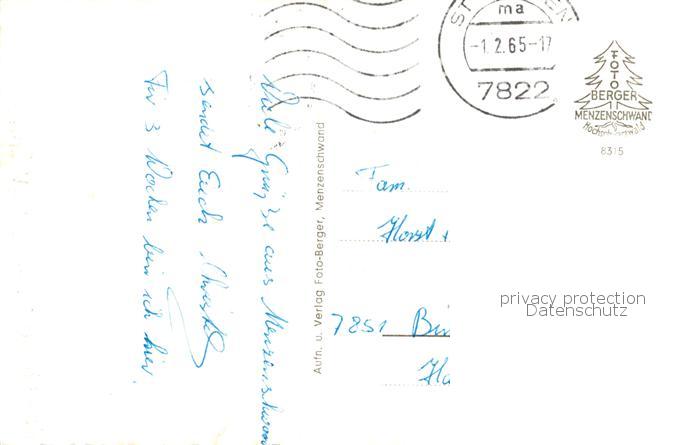 Viele Grüße aus Menzenschwand
sendet Euch Christel
Für 3 Wochen bin ich hier.
Aufn. u. Verlag Foto-Berger, Menzenschwand
ST. EN
ma
-1.2.65-17
7822
FOTO
BERGER
MENZENSCHWAND
Hochschwarzwald
8315
Fam.
Horst
7851 Bin
Ha
privacy protection
Datenschutz